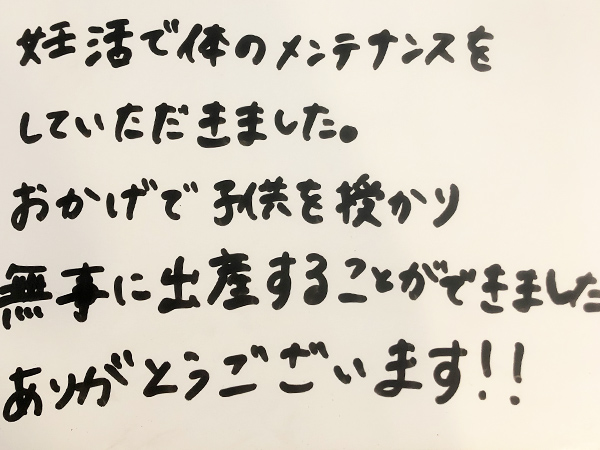 妊活で体のメンテナンスを
していただきました。
おかげで子供を授かり
無事に出産することができました
ありがとうございます!!